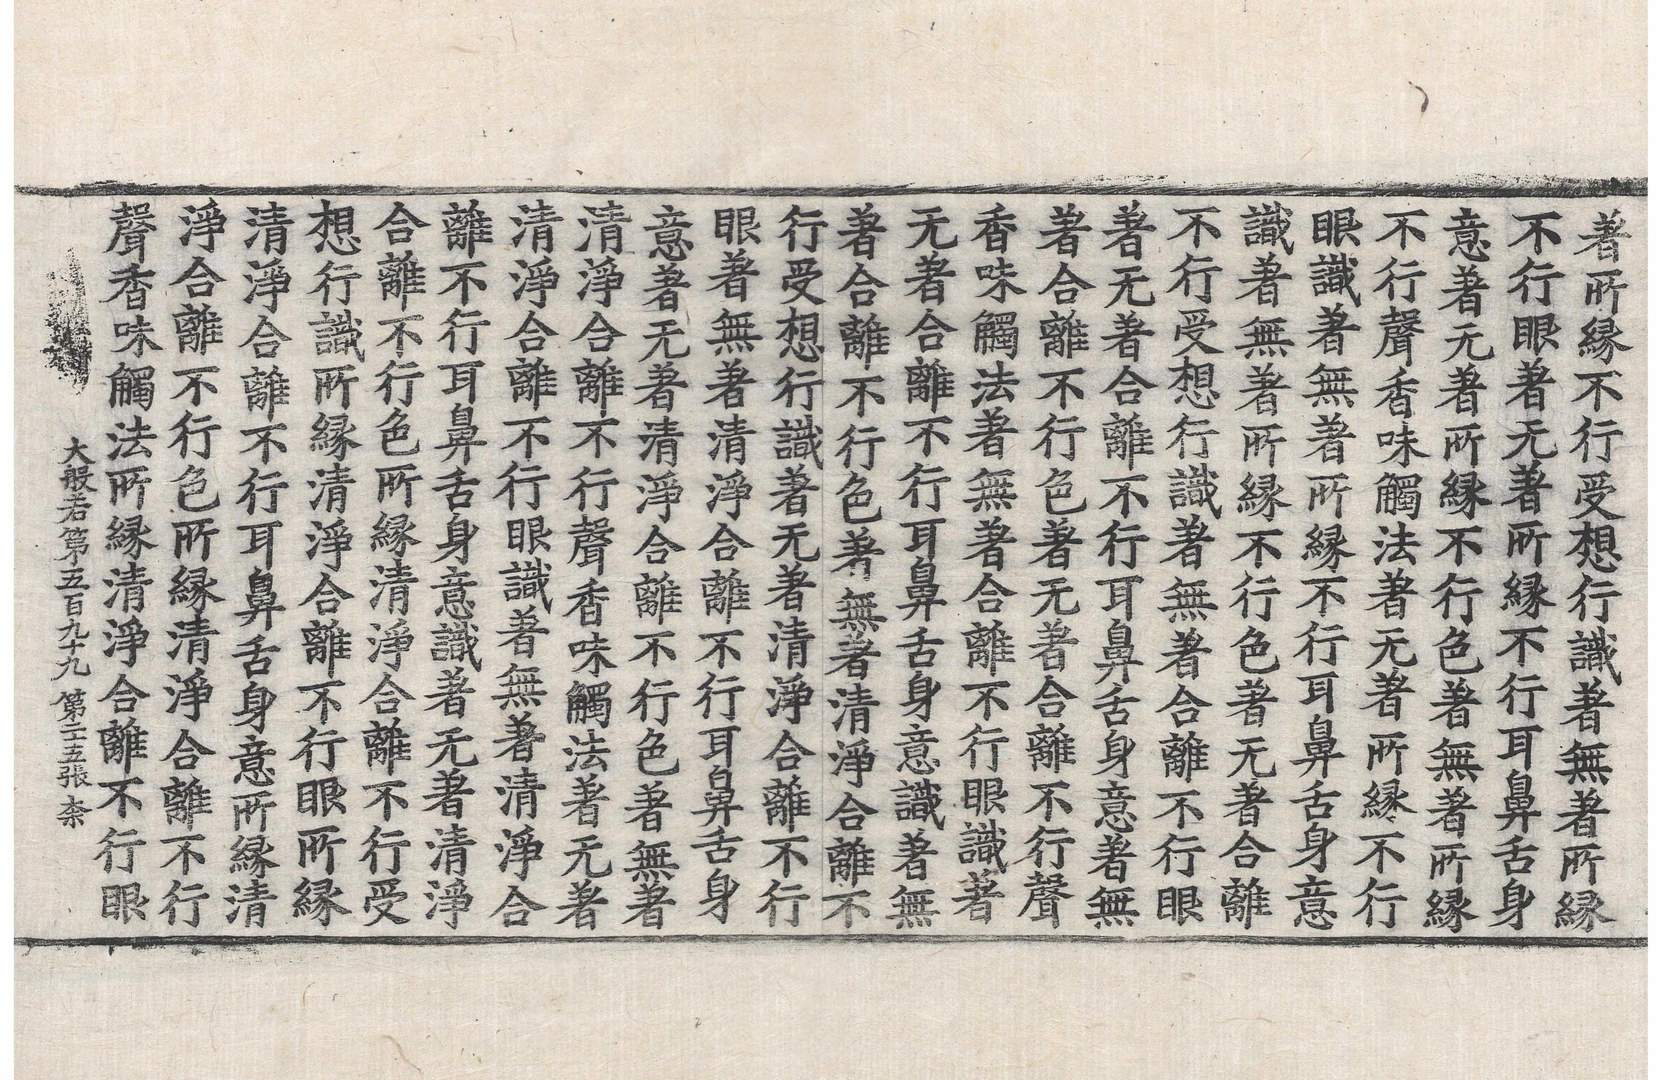 著所縁不行受想行識著無著所縁
不行眼著无著所縁不行耳鼻舌身
意著无著所縁不行色著無著所縁
不行聲香味觸法著无著所縁不行
眼識著無著所縁不行耳鼻舌身意
識著無著所縁不行色著无著合離
不行受想行識著無著合離不行眼
著无著合離不行耳鼻舌身意著無
著合離不行色著无著合離不行聲
香味觸法著無著合離不行眼識著
无著合離不行耳鼻舌身意識著無
著合離不行色著無著清淨合離不
行受想行識著无著清淨合離不行
眼著無著清淨合離不行耳鼻舌身
意著无著清淨合離不行色著無著
清淨合離不行聲香味觸法著无著
清淨合離不行眼識著無著清淨合
離不行耳鼻舌身意識著无著清淨
合離不行色所縁清淨合離不行受
想行識所縁清淨合離不行眼所縁
清淨合離不行耳鼻舌身意所縁清
淨合離不行色所縁清淨合離不行
聲香味觸法所縁清淨合離不行眼
大般若第五百九十九 第二十五張 柰